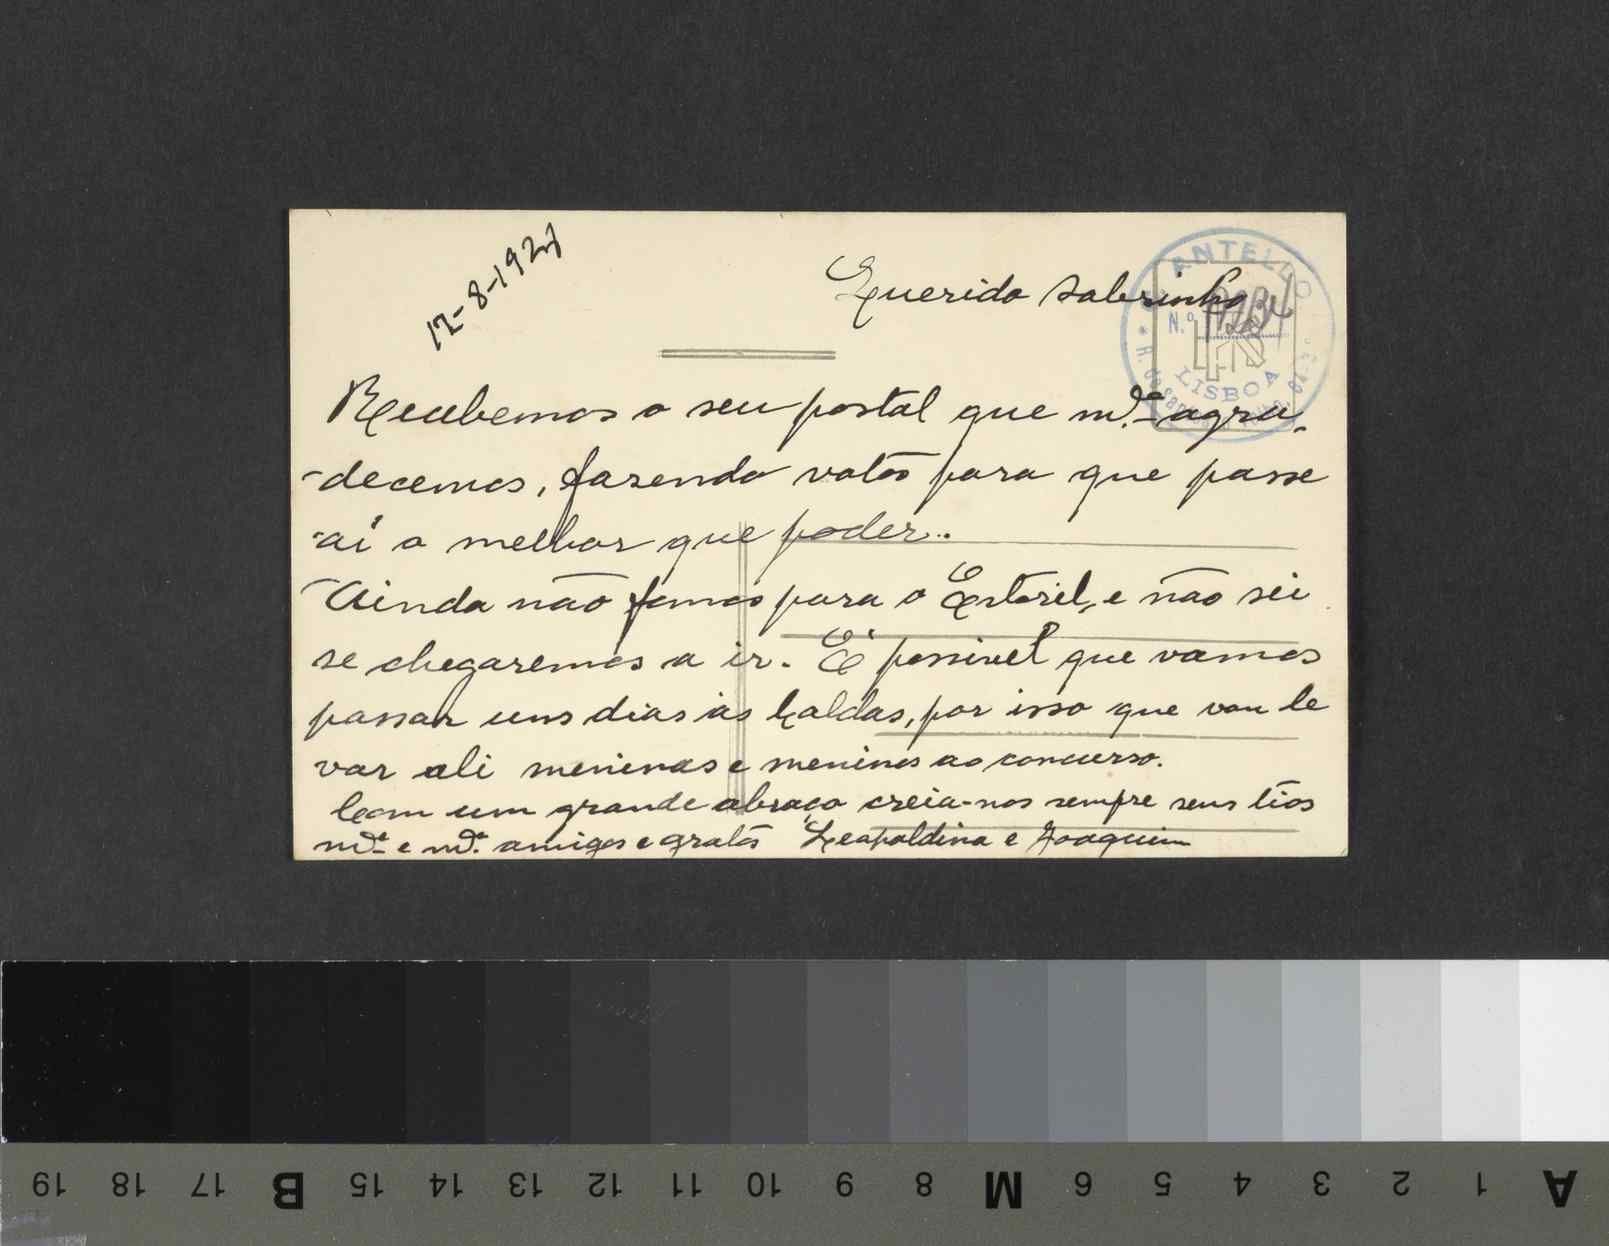 12-8-1927
Querido Sobrinho
Recebemos o seu postal que m.ᵗᵒ agra-
-decemos, fazendo votos para que passe
-ai o melhor que poder..
Ainda não fomos para o Estoril, e não sei
se chegaremos a ir. É possivel que vamos
passar uns dias ás Caldas, por isso que vou le
var ali meninas e meninos ao concurso.
Com um grande abraço creia-nos sempre seus tios
m.ᵗᵒ e m.ᵗᵒ amigos e gratos Leopoldina e Joaquim
ANTELLO
N.º
LISBOA
19 18 17 B 15 14 13 12 11 10 9 8 M 6 5 4 3 2 1 A